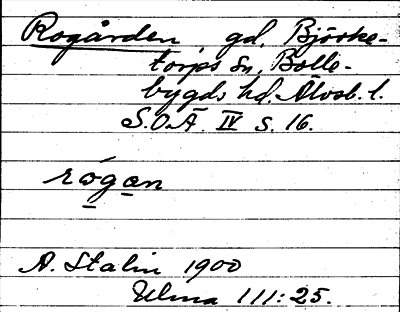 Rogården gd, Björke-
torps sn, Bolle-
bygds hd. Älvsb. l.
S.O.Ä. IV s. 16.
rógan
A. Stalin 1900
Ulma 111:25.